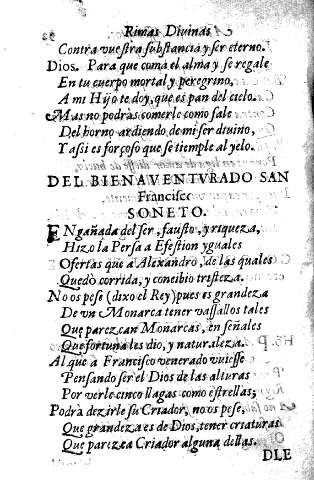 Rimas Divinas
Contra vuestra substancia y ser eterno.
Dios. Para que coma el alma y se regale
En tu cuerpo mortal y peregrino,
A mi Hijo te doy, que es pan del cielo.
Mas no podràs comerle como sale
Del horno ardiendo de mi ser diuino,
Y assi es forçoso que se tiemple al yelo.
DEL BIENAVENTVRADO SAN
Francisco
SONETO.
ENgañada del ser, fausto, y riqueza,
Hizo la Persa a Efestion yguales
Ofertas que a Alexandro, de las quales
Quedò corrida, y concibio tristeza.
No os pese (dixo el Rey) pues es grandeza
De vn Monarca tener vassallos tales
Que parezcan Monarcas, en señales
Que fortuna les dio, y naturaleza.
Al que a Francisco venerado vuiesse
Pensando ser el Dios de las alturas
Por verle cinco llagas como estrellas;
Podrà dezirle su Criador, no os pese,
Que grandeza es de Dios, tener criaturas
Que parezca Criador alguna dellas.
DLE